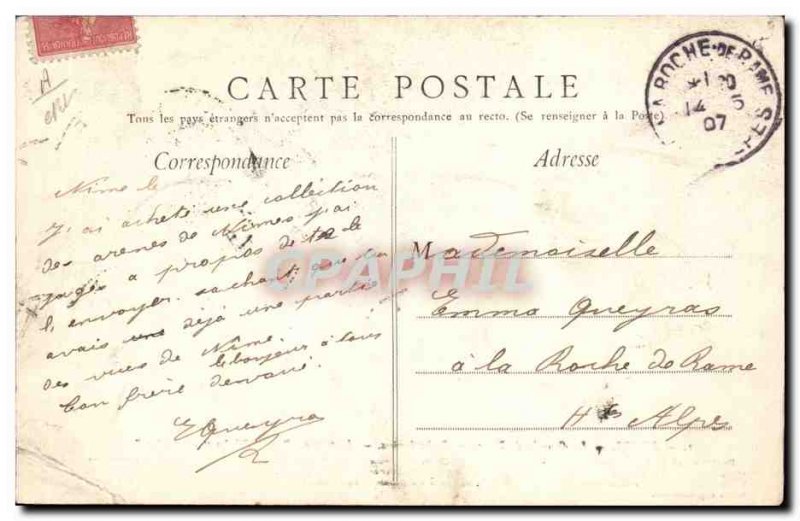 A
CARTE POSTALE
Tous les pays étrangers n'acceptent pas la correspondance au recto. (Se renseigner à la Poste)
LA ROCHE-DE-RAME
14 5
07
ALPES
Correspondance
Nime le
J'ai acheté une collection
des arenes de Nimes j'ai
jugés a propos de te le
l'envoyer sachant que tu
avais une déjà une partie
des vues de Nime.
le bonjour à tous
ton frère devoué.
EQueyras
Adresse
Mademoiselle
Emma Queyras
à la Roche de Rame
Htes Alpes
CPAPHIL